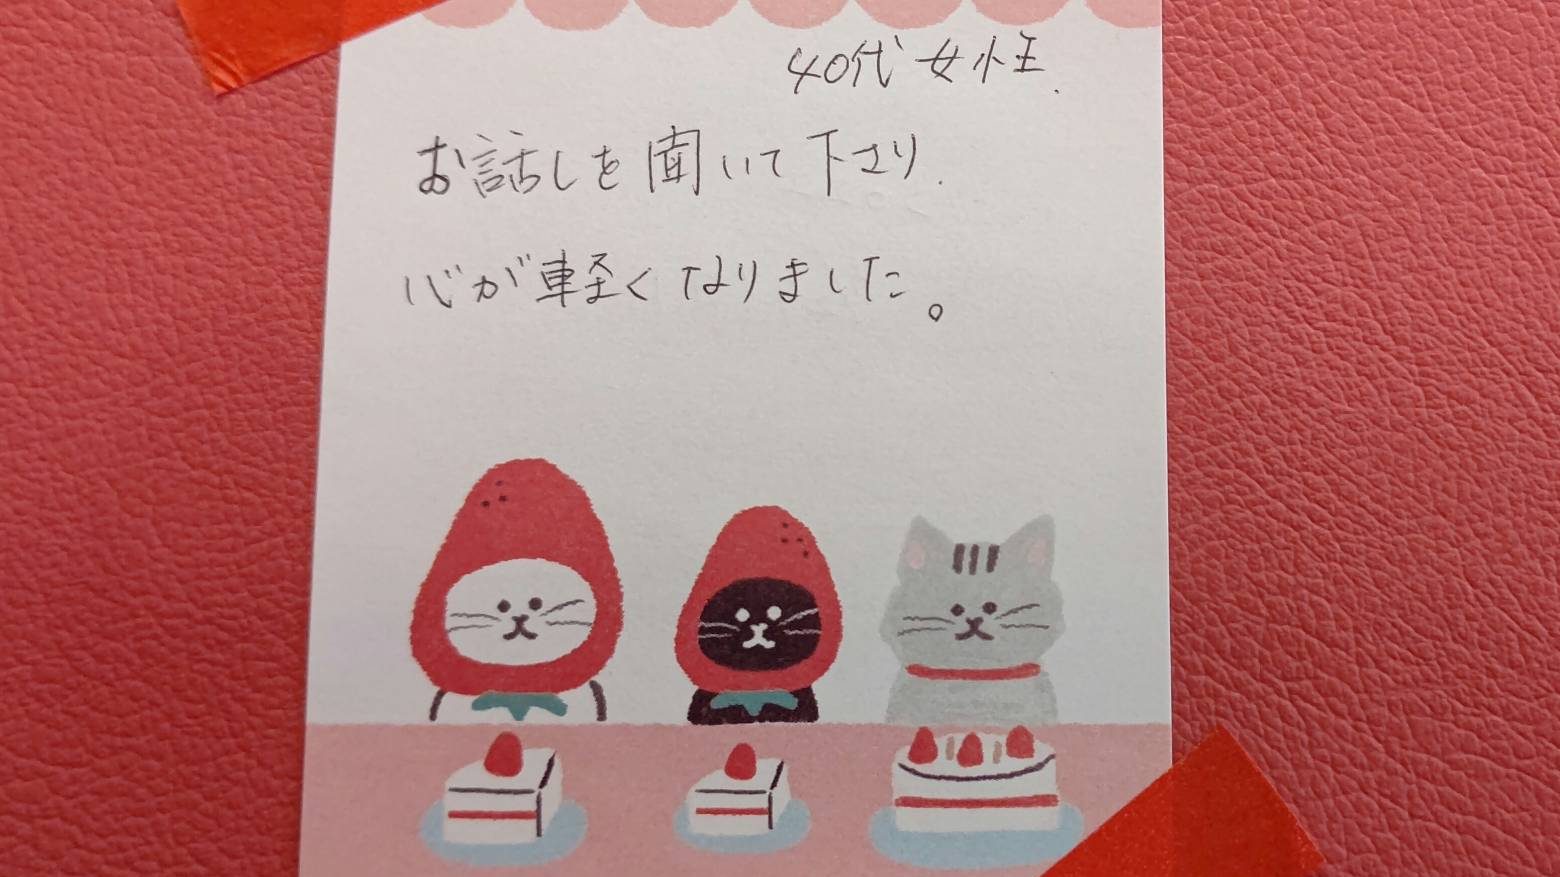 40代女性.
お話しを聞いて下さり.
心が軽くなりました。